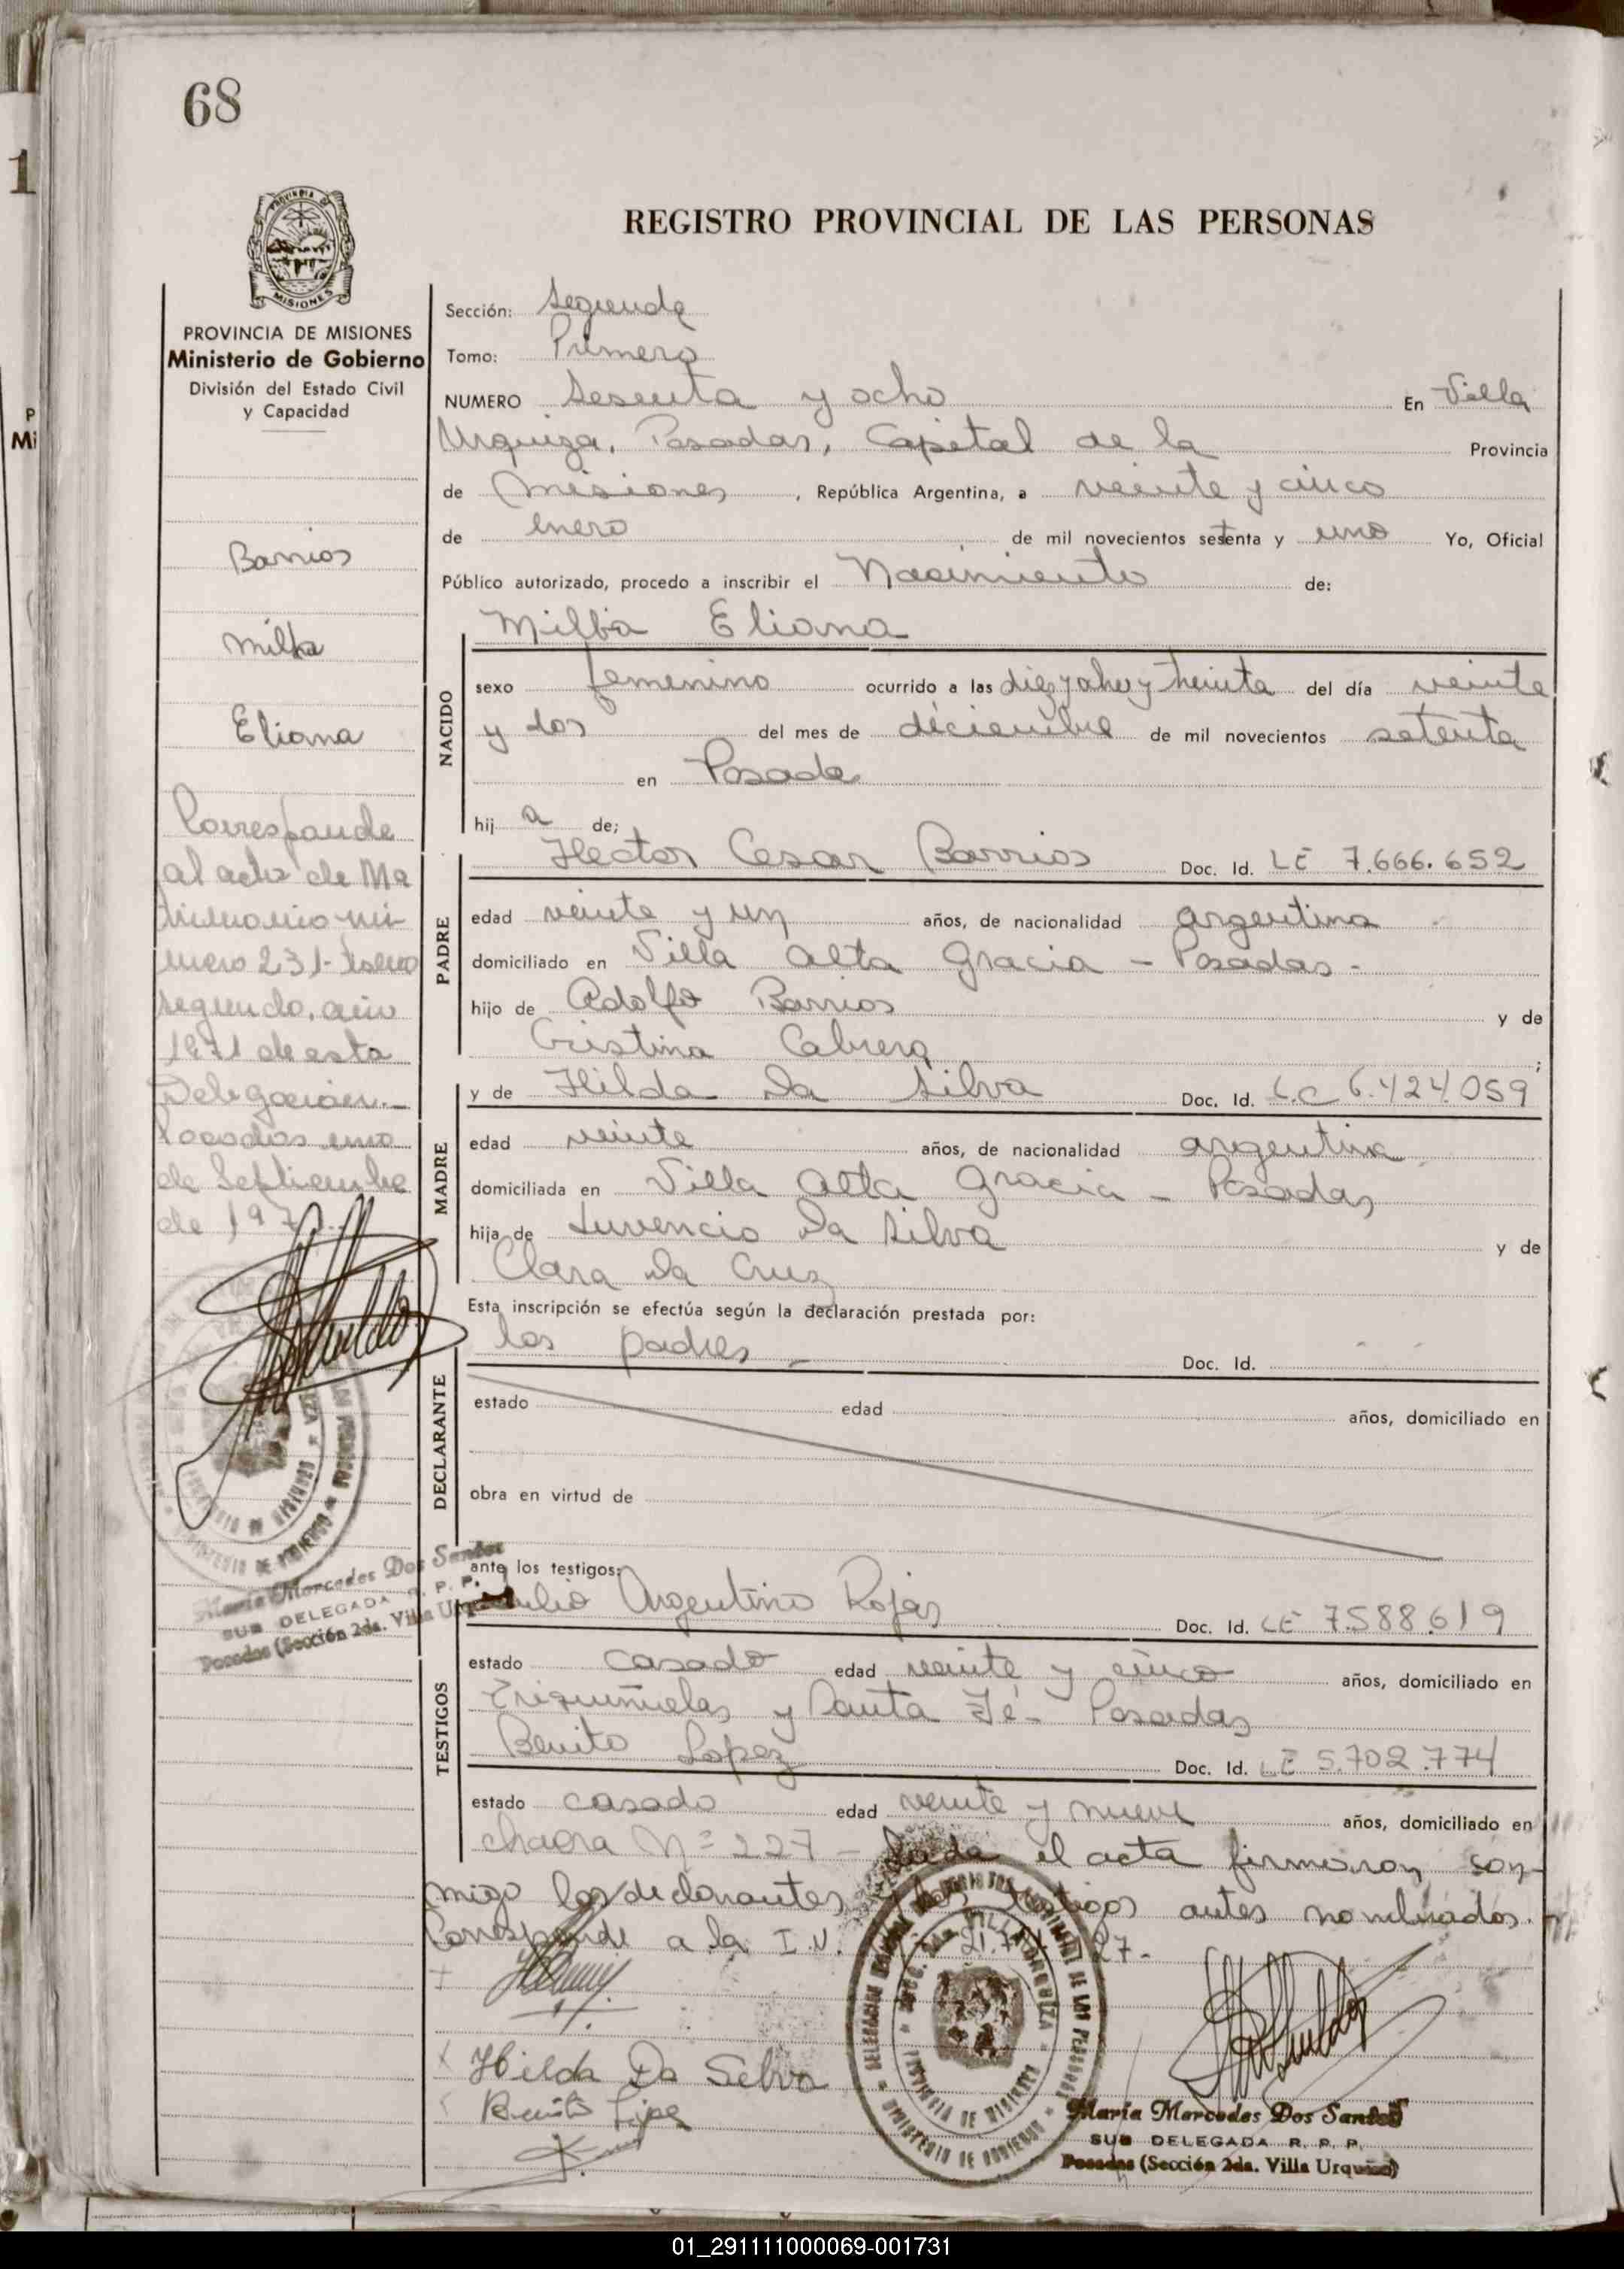 68
1
REGISTRO PROVINCIAL DE LAS PERSONAS
PROVINCIA DE
MISIONES
PROVINCIA DE MISIONES
Ministerio de Gobierno
División del Estado Civil
y Capacidad
P
Mi
Barrios
Milba
Eliana
Corresponde
al acta de Ma
trimonio nú-
mero 231- tomo
segundo, año
1971 de esta
Delegación.-
Posadas uno
de Septiembre
de 1971.-
María Mercedes Dos Santos
SUB DELEGADA R. P. P.
Posadas (Sección 2da. Villa Urquiza)
Sección: Segunda
Tomo: Primero
NUMERO Sesenta y ocho En Villa
Urquiza, Posadas, Capital de la Provincia
de Misiones, República Argentina, a veinte y cinco
de enero de mil novecientos setenta y uno Yo, Oficial
Público autorizado, procedo a inscribir el Nacimiento de:
Milba Eliana
NACIDO
sexo femenino ocurrido a las diez y ocho y treinta del día veinte
y dos del mes de diciembre de mil novecientos setenta
en Posadas
hij a de;
Hector Cesar Barrios Doc. Id. LE 7.666.652
PADRE
edad veinte y un años, de nacionalidad argentina
domiciliado en Villa Alta Gracia - Posadas -
hijo de Adolfo Barrios y de
Cristina Cabrera ;
y de Hilda Da Silva Doc. Id. L.C 6.424.059
MADRE
edad veinte años, de nacionalidad argentina
domiciliada en Villa Alta Gracia - Posadas
hija de Luvencio Da Silva y de
Clara Da Cruz
Esta inscripción se efectúa según la declaración prestada por:
los padres - Doc. Id.
DECLARANTE
estado edad años, domiciliado en
obra en virtud de
ante los testigos:
Julio Argentino Rojas Doc. Id. LE 7.588.619
TESTIGOS
estado casado edad veinte y cinco años, domiciliado en
y Santa Fé - Posadas
Benito Lopez Doc. Id. LE 5.702.774
estado casado edad veinte y nueve años, domiciliado en
chacra Nº 227 - Leída el acta firmaron con-
migo los declarantes y los testigos antes nombrados.
Corresponde a la I.N.
Hilda Da Silva
Benito Lopez
María Mercedes Dos Santos
SUB DELEGADA R. P. P.
Posadas (Sección 2da. Villa Urquiza)
01_291111000069-001731